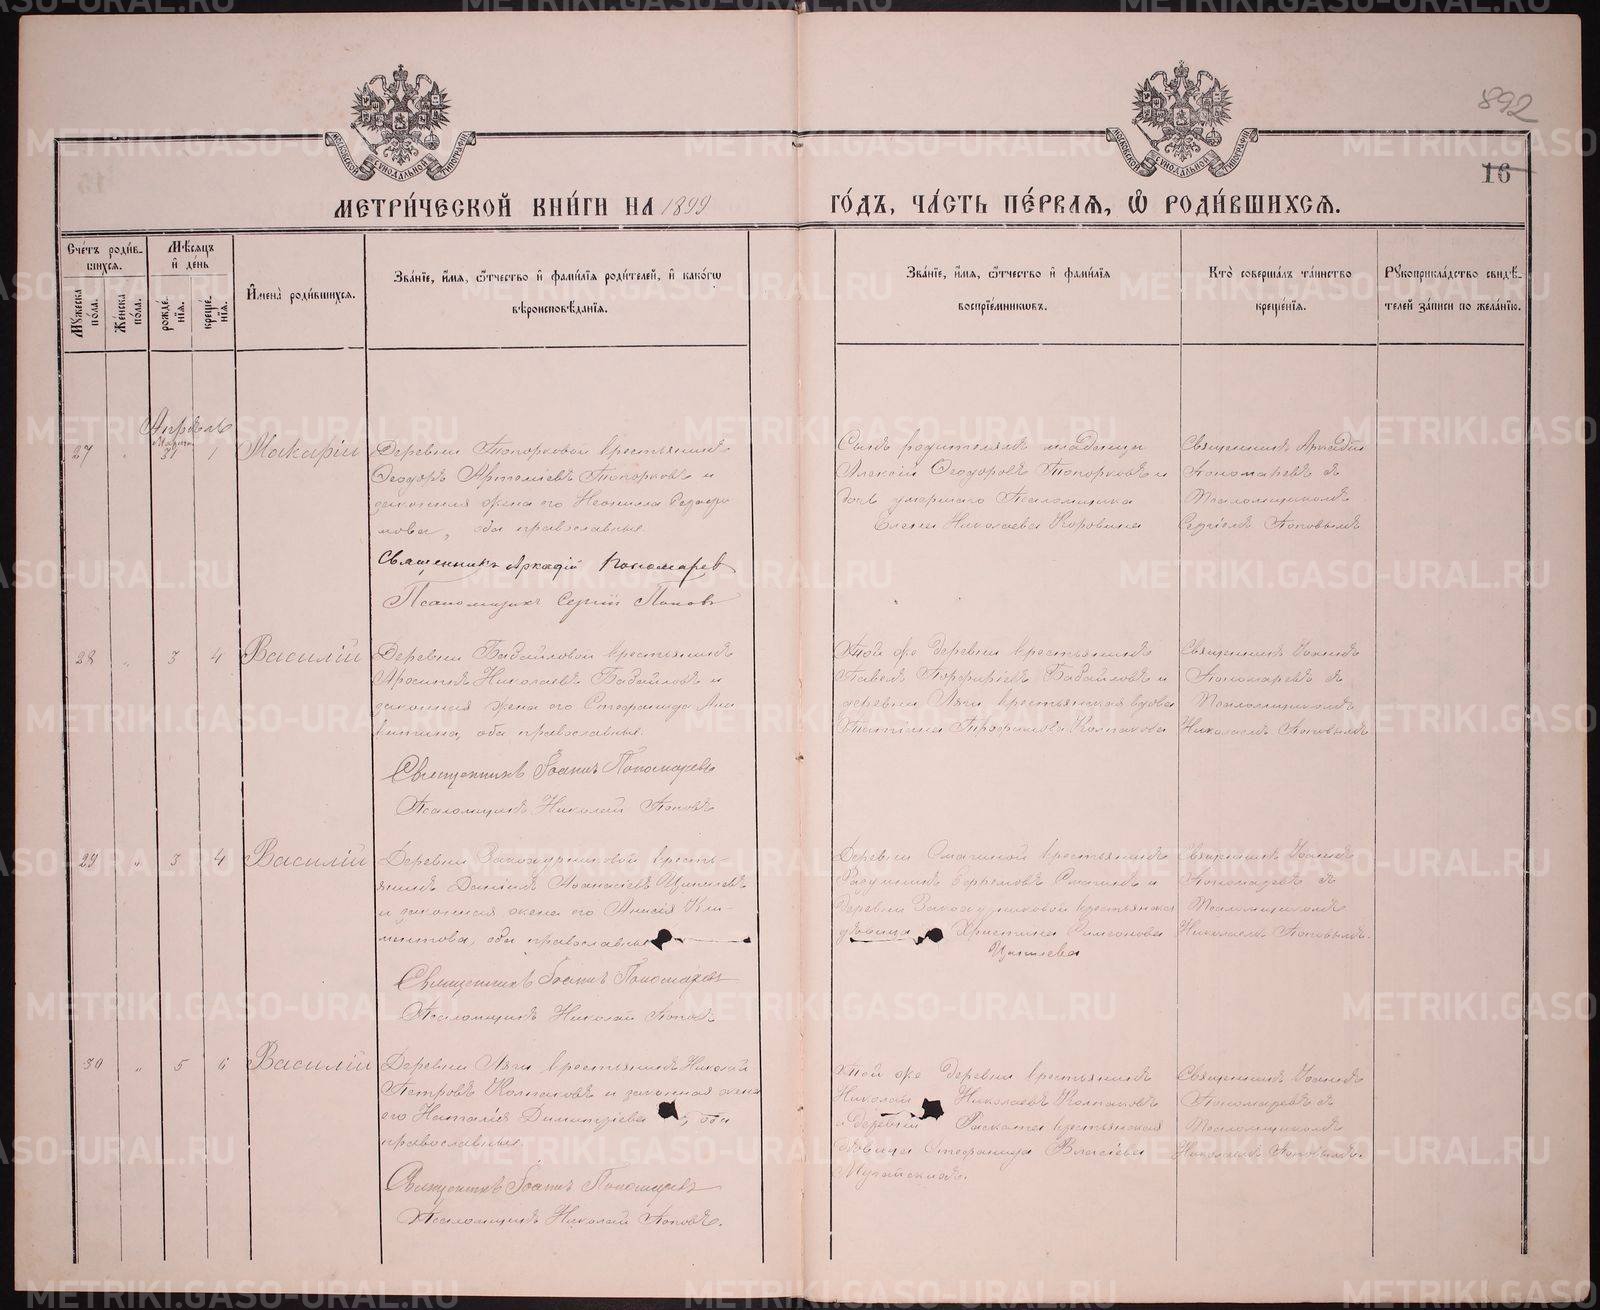 892
16
МОСКОВСКОЙ СѴНОДАЛЬНОЙ ТИПОГРАФІИ
МОСКОВСКОЙ СѴНОДАЛЬНОЙ ТИПОГРАФІИ
МЕТРИ́ЧЕСКОЙ КНИ́ГИ НА 1899
ГО́ДЪ, ЧА́СТЬ ПЕ́РВАЯ, Ѡ҆ РОДИ́ВШИХСЯ.
Сче́тъ роди́в-
шихся.
Му́жеска по́ла.
Же́нска по́ла.
Мѣ́сяцъ
и҆ де́нь
рожде́нїя.
креще́нїя.
И҆мена̀ роди́вшихся.
Зва́нїе, и҆́мя, ѻ҆́тчество и҆ фами́лїя роди́телей, и҆ како́гѡ
вѣроисповѣ́данїя.
Зва́нїе, и҆́мя, ѻ҆́тчество и҆ фами́лїя
воспрїе́мниковъ.
Кто̀ соверша́лъ та́инство
креще́нїя.
Рꙋкоприкла́дство свидѣ́-
телей за́писи по жела́нїю.
Апрѣль
Марта
27 " 31 1 Макарій
Деревни Топорковой крестьянинъ
Ѳеодоръ Артеміевъ Топорковъ и
законная жена его Неонила
, оба православные
Священникъ Аркадій Пономарев
Псаломщикъ Сергій Поповъ
Сынъ родителямъ младенца
Алексій Ѳеодоровъ Топорковъ и
дочь умершаго Псаломщика
Елена Николаева Коровина
Священникъ Аркадій
Пономаревъ съ
Псаломщикомъ
Сергіемъ Поповымъ
28 " 3 4 Василій
Деревни Бадайловой крестьянинъ
Николаевъ Бадайловъ и
законная жена его Стефанида Ани
китина, оба православные.
Священникъ Іоаннъ Пономаревъ
Псаломщикъ Николай Поповъ
Той же деревни крестьянинъ
Павелъ Порфиріевъ Бадайловъ и
деревни Ляги крестьянская вдова
Татіана Трофимова Колпакова
Священникъ Іоаннъ
Пономаревъ съ
Псаломщикомъ
Николаемъ Поповымъ
29 " 3 4 Василій
Деревни кресть-
янинъ Даніилъ Аѳанасіевъ Цыпилевъ
и законная жена его Анисія Кли-
ментова, оба православные
Священникъ Іоаннъ Пономаревъ
Псаломщикъ Николай Поповъ
Деревни Смагиной крестьянинъ
Ефремовъ Смагинъ и
деревни крестьянска
дѣвица Христина Симеонова
Цыпилева
Священникъ Іоаннъ
Пономаревъ съ
Псаломщикомъ
Николаемъ Поповымъ.
30 " 5 6 Василій
Деревни Ляги крестьянинъ Николай
Петровъ Колпаковъ и законная жена
его Наталія Димитріева, оба
православные.
Священникъ Іоаннъ Пономаревъ
Псаломщикъ Николай Поповъ.
Той же деревни крестьянинъ
Николай Николаевъ Колпаковъ
и деревни Раската крестьянская
дѣвица Стефанида Власіева
Священникъ Іоаннъ
Пономаревъ съ
Псаломщикомъ
Николаемъ Поповымъ.
METRIKI.GASO-URAL.RU